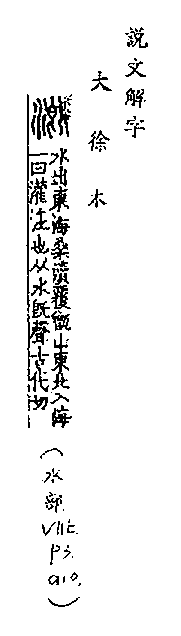 説文解字
大徐本
溉 水出東海桑瀆覆甑山東北入海
一曰灌注也从水既聲古代切
(水部. VIIt. p3. a10.)